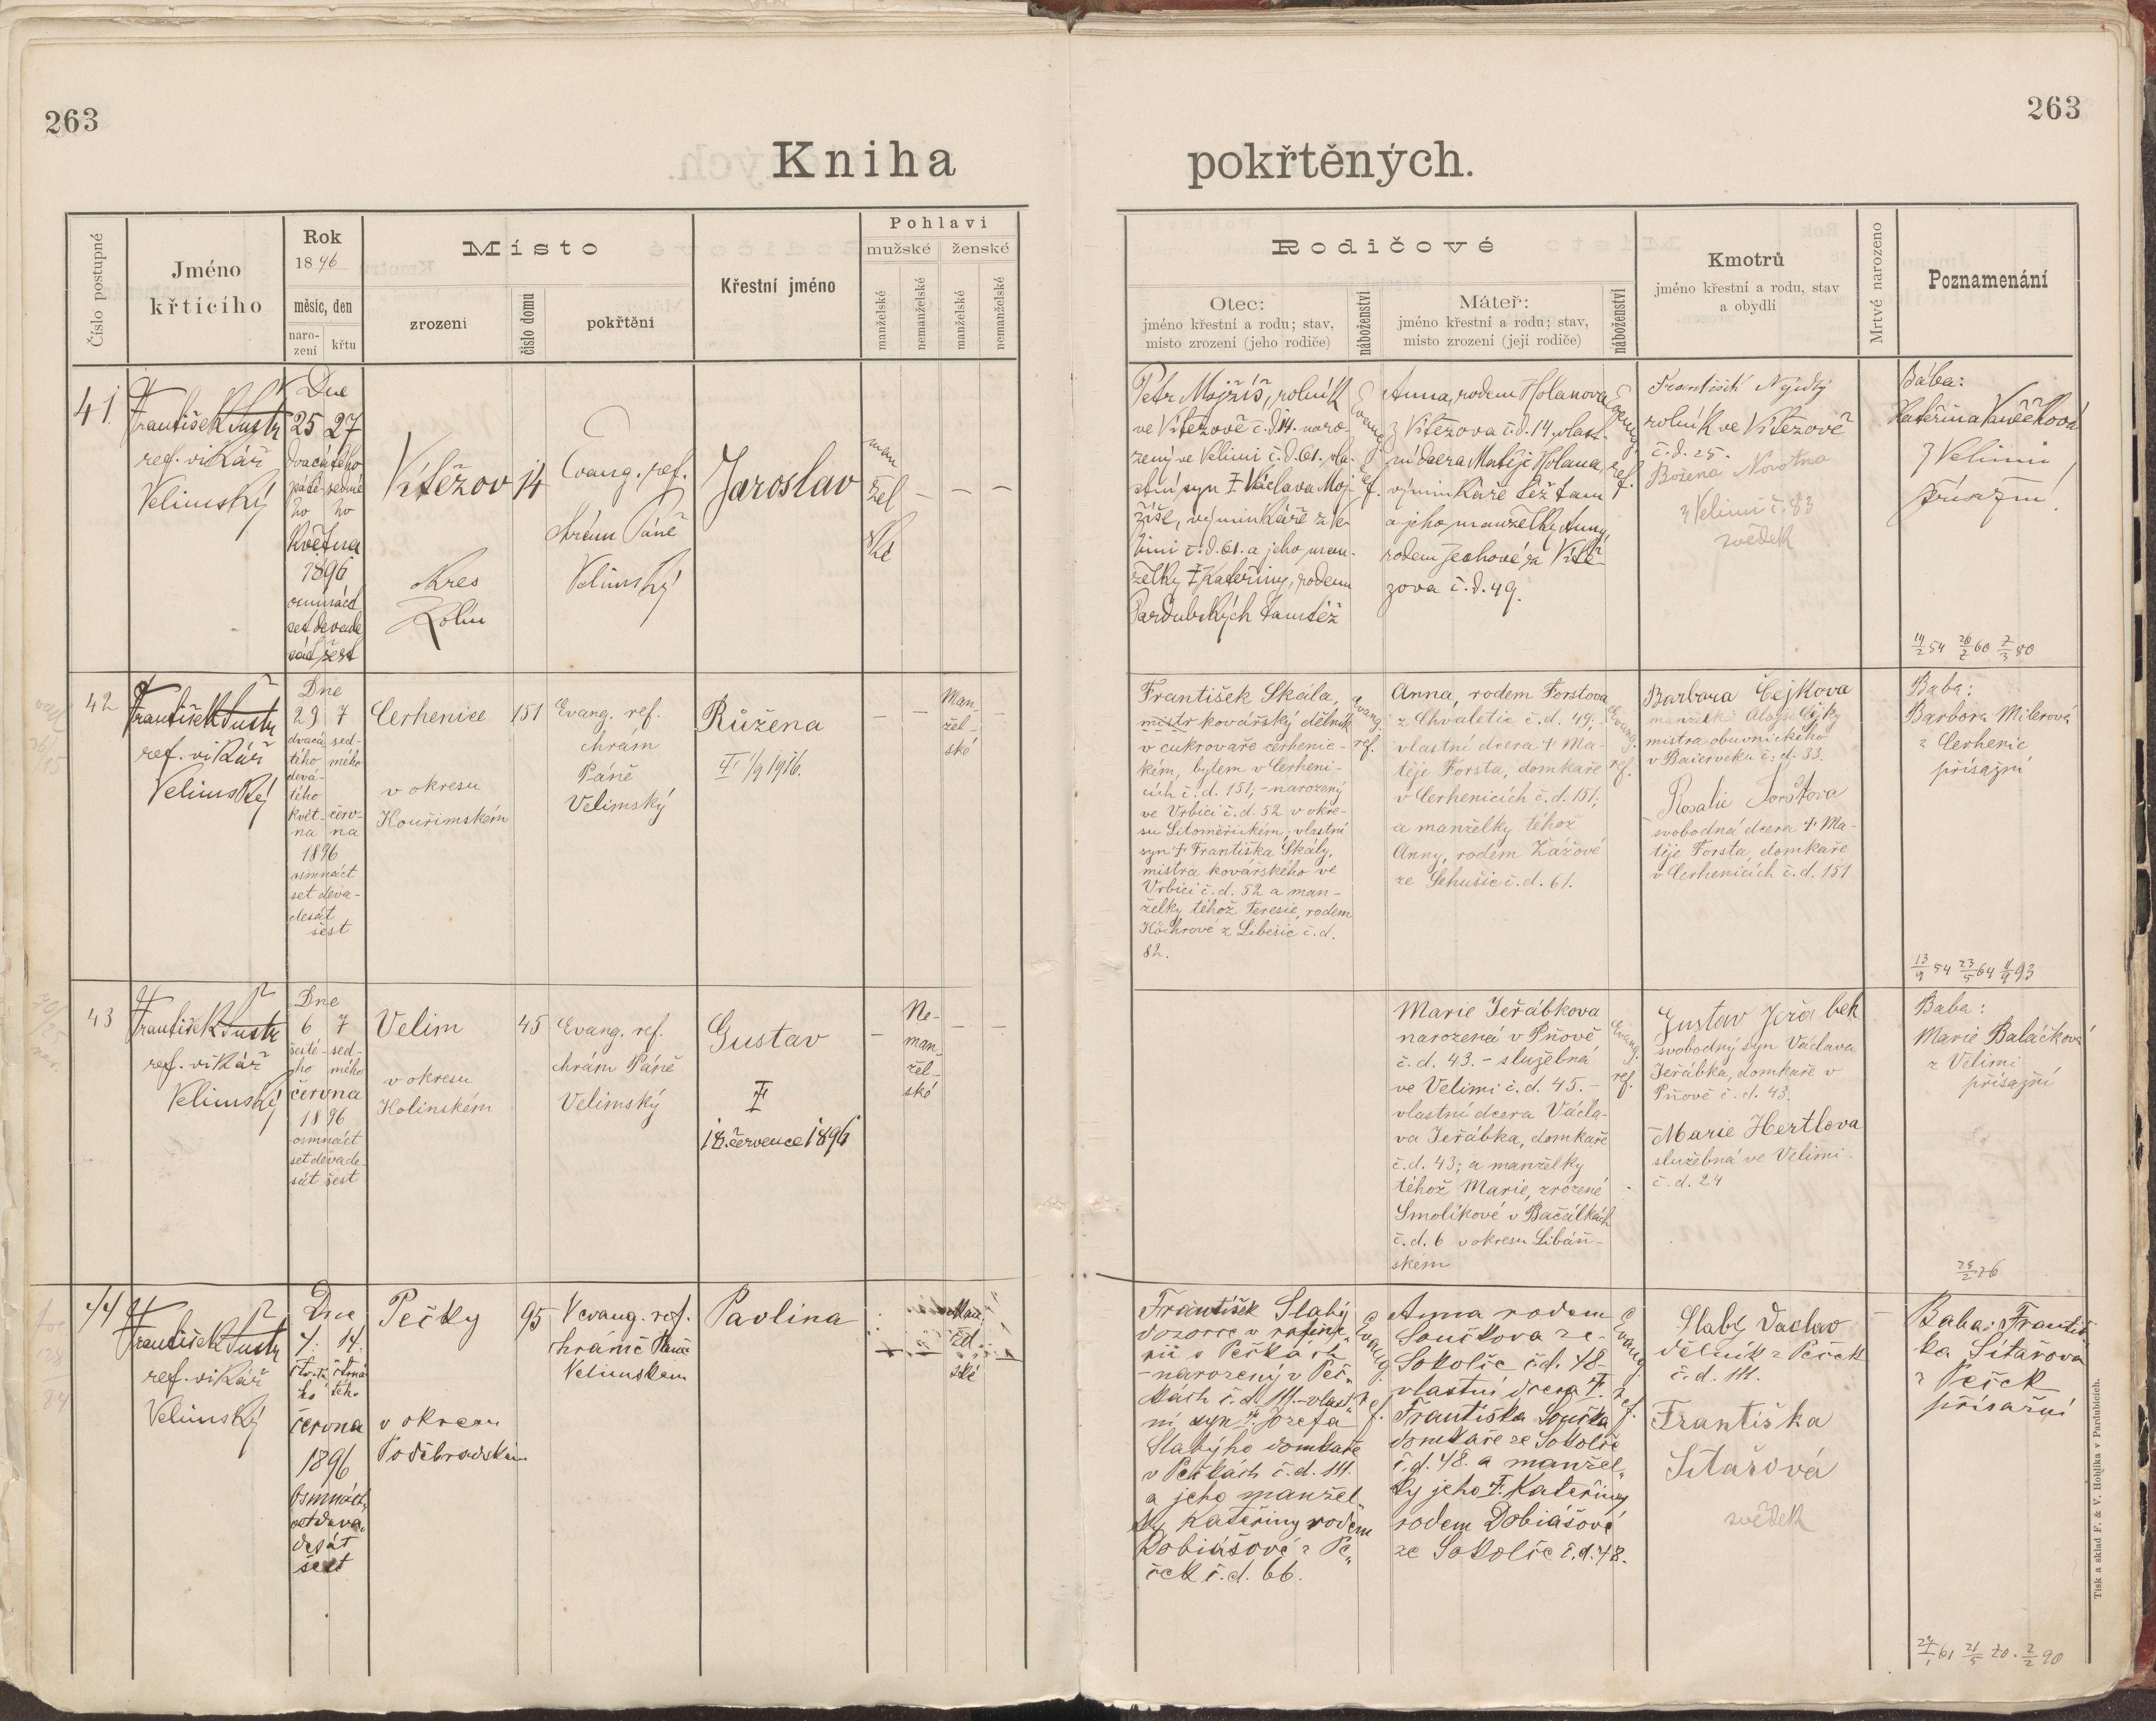 263
263
Kniha
pokřtěných.
Číslo postupné
Jméno
křtícího
Rok
1896
měsíc, den
naro-
zení
křtu
Místo
zrození
číslo domu
pokřtění
Křestní jméno
Pohlaví
mužské
ženské
manželské
nemanželské
manželské
nemanželské
Rodičové
Otec:
jméno křestní a rodu; stav,
místo zrození (jeho rodiče)
náboženství
Máteř:
jméno křestní a rodu; stav,
místo zrození (její rodiče)
náboženství
Kmotrů
jméno křestní a rodu, stav
a obydlí
Mrtvé narozeno
Poznamenání
41.
František Šustr
ref. vikář
Velimský
Dne
25 27
dvacátého
páté- sedmé
ho ho
května
1896
osmnáct
set devade
sát šest
Vítěžov
okres
Kolín
14
Evang. ref.
chrám Páně
Velimský
Jaroslav
man
žel
ské
Petr Mojžíš, rolník
ve Vítězově č.d. 14. naro-
zený ve Velimi č.d. 61. vla-
stní syn Ŧ Václava Moj-
žíše, výminkáře z Ve
limi č.d. 61. a jeho man-
želky Ŧ Kateřiny, rodem
Pardubských tamtéž
Evang.
ref.
Anna, rodem Holanova
z Vítězova č.d. 14. vlast-
ní dcera Matěje Holana,
výminkáře též tam
a jeho manželky Anny
rodem Zechové z Vítě-
zova č.d. 49.
Evang.
ref.
František Nejedlý
rolník ve Vítězově
č. d. 25.
Božena Novotna
z Velimi č. 83
svědek
Bába:
Kateřina
z Velimi
přísežní
14/2 54 26/2 60 2/3 80
42
František Šustr
ref. vikář
Velimský
Dne
29 7
dvacá- sed-
tého mého
devá-
tého
květ- červ-
na na
1896
osmnáct
set deva-
desát
šest
Cerhenice
v okresu
Kouřimském
151
Evang. ref.
chrám
Páně
Velimský
Růžena
Ŧ 1/9 1916.
Man-
žel-
ské
František Skála,
mistr kovářský dělník
v cukrovaře cerhenic-
kém, bytem v Cerheni-
cích č. d. 151; - narozený
ve Vrbici č. d. 52 v okre-
su Litoměřickém; vlastní
syn Ŧ Františka Skály,
mistra kovářského ve
Vrbici č. d. 52 a man-
želky téhož Teresie, rodem
Köchrové z Liběšic č. d.
82.
Evang.
ref.
Anna, rodem Forstova
z Chvaletic č. d. 49;
vlastní dcera Ŧ Ma-
těje Forsta, domkaře
v Cerhenicích č. d. 151;
a manželky téhož
Anny, rodem Zázové
ze Sehušic č. d. 61.
Evang.
ref.
Barbara Čejkova
manželka Aloise Čejky
mistra obuvnického
v Baierveku č. d. 33.
Rosalie Forstova
svobodná dcera Ŧ Ma-
těje Forsta, domkaře
v Cerhenicích č. d. 151
Baba:
Barbora Milerová
z Cerhenic
přísažní
13/9 54 23/5 64 4/9 93
43
František Šustr
ref. vikář
Velimský
Dne
6 7
šesté- sed-
ho mého
června
1896
osmnáct
set devade-
sát šest
Velim
v okresu
Kolinském
45
Evang. ref.
chrám Páně
Velimský
Gustav
Ŧ
18. července 1896
Ne-
man-
žel-
ské
Marie Jeřábkova
narozená v Pňově
č. d. 43. - služebná
ve Velimi č. d. 45. -
vlastní dcera Václa-
va Jeřábka, domkaře
č. d. 43; a manželky
téhož Marie, zrozené
Smolíkové v Bačálkách
č. d. 6 v okresu Libáň-
ském
Evang.
ref.
Gustav Jeřábek
svobodný syn Václava
Jeřábka, domkaře v
Pňově č. d. 43.
Marie Hertlova
služebná ve Velimi
č. d. 24
Baba:
Marie Baláčková
z Velimi
přísažní
44
František Šustr
ref. vikář
Velimský
Dne
4. 14.
čtvrté čtrná
ho tého
června
1896
Osmnáct
set deva
desát
šest
Pečky
v okresu
Poděbradském
95
V evang. ref.
chrámě Páně
Velimském
Pavlina
Man
žel
ské
František Slabý
dozorce v rafine-
rii v Pečkách
- narozený v Peč-
kách č. d. 111. - vlast-
ní syn Ŧ Josefa
Slabýho domkaře
v Pečkách č. d. 111.
a jeho manžel-
ky Kateřiny rodem
Dobiášové z Pe-
ček č. d. 66.
Evang.
ref.
Anna rodem
Součkova ze
Sokolče č.d. 48 -
vlastní dcera Ŧ.
Františka Součka
domkaře ze Sokolče
č. d. 48. a manžel-
ky jeho Ŧ. Kateřiny
rodem Dobiášové
ze Sokolče č. d. 48.
Evang.
ref.
Slabý Václav
dělník z Peček
č. d. 111.
Františka
Sitařová
svědek
Baba: Františ
ka Sitařova
z Peček
přísažní
Tisk a sklad F. & V. Hoblíka v Pardubicích.